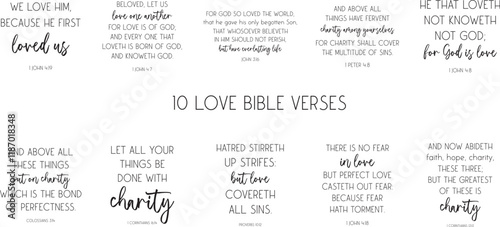 WE LOVE HIM,
BECAUSE HE FIRST
loved us
1 JOHN 4:19
BELOVED, LET US
love one another
FOR LOVE IS OF GOD;
AND EVERY ONE THAT
LOVETH IS BORN OF GOD,
AND KNOWETH GOD.
1 JOHN 4:7
FOR GOD SO LOVED THE WORLD,
that he gave his only begotten Son,
THAT WHOSOEVER BELIEVETH
IN HIM SHOULD NOT PERISH,
but have everlasting life.
JOHN 3:16
AND ABOVE ALL
THINGS HAVE FERVENT
charity among yourselves
FOR CHARITY SHALL COVER
THE MULTITUDE OF SINS.
1 PETER 4:8
HE THAT LOVETH
NOT KNOWETH
NOT GOD;
for God is love
1 JOHN 4:8
10 LOVE BIBLE VERSES
AND ABOVE ALL
THESE THINGS
put on charity
WHICH IS THE BOND
OF PERFECTNESS.
COLOSSIANS 3:14
LET ALL YOUR
THINGS BE
DONE WITH
charity
1 CORINTHIANS 16:14
HATRED STIRRETH
UP STRIFES:
but love
COVERETH
ALL SINS.
PROVERBS 10:12
THERE IS NO FEAR
in love
BUT PERFECT LOVE
CASTETH OUT FEAR:
BECAUSE FEAR
HATH TORMENT.
1 JOHN 4:18
AND NOW ABIDETH
faith, hope, charity,
THESE THREE;
BUT THE GREATEST
OF THESE IS
charity
Adobe Stock | #1187018348